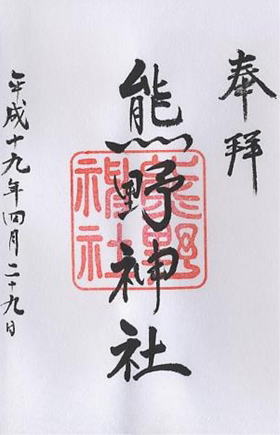 奉拝
熊野神社
熊野
神社
平成十九年四月二十九日